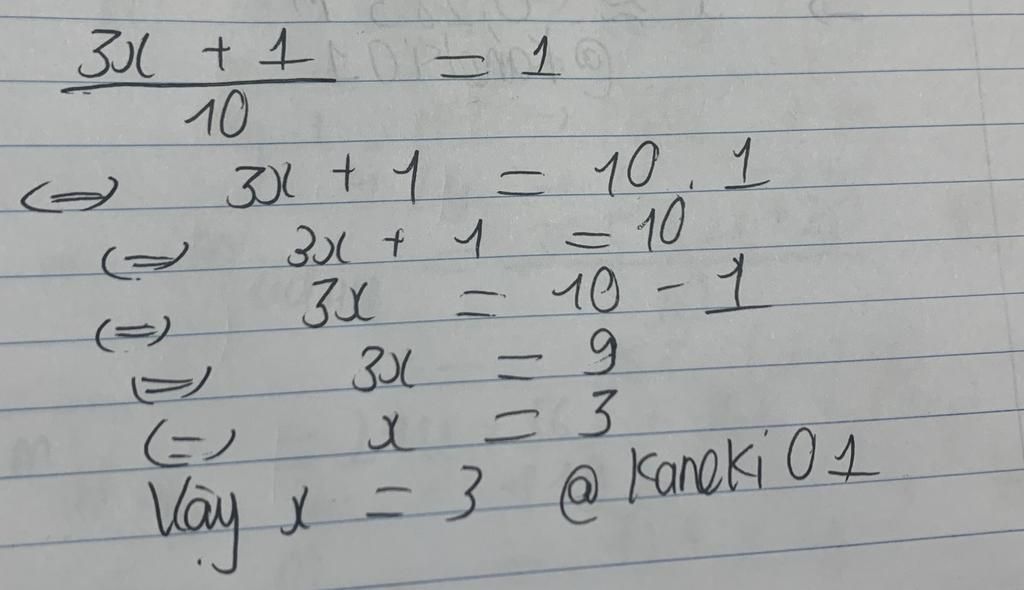 3x + 1 / 10 = 1
(=) 3x + 1 = 10 . 1
(=) 3x + 1 = 10
(=) 3x = 10 - 1
(=) 3x = 9
(=) x = 3
Vậy x = 3 @Kaneki01